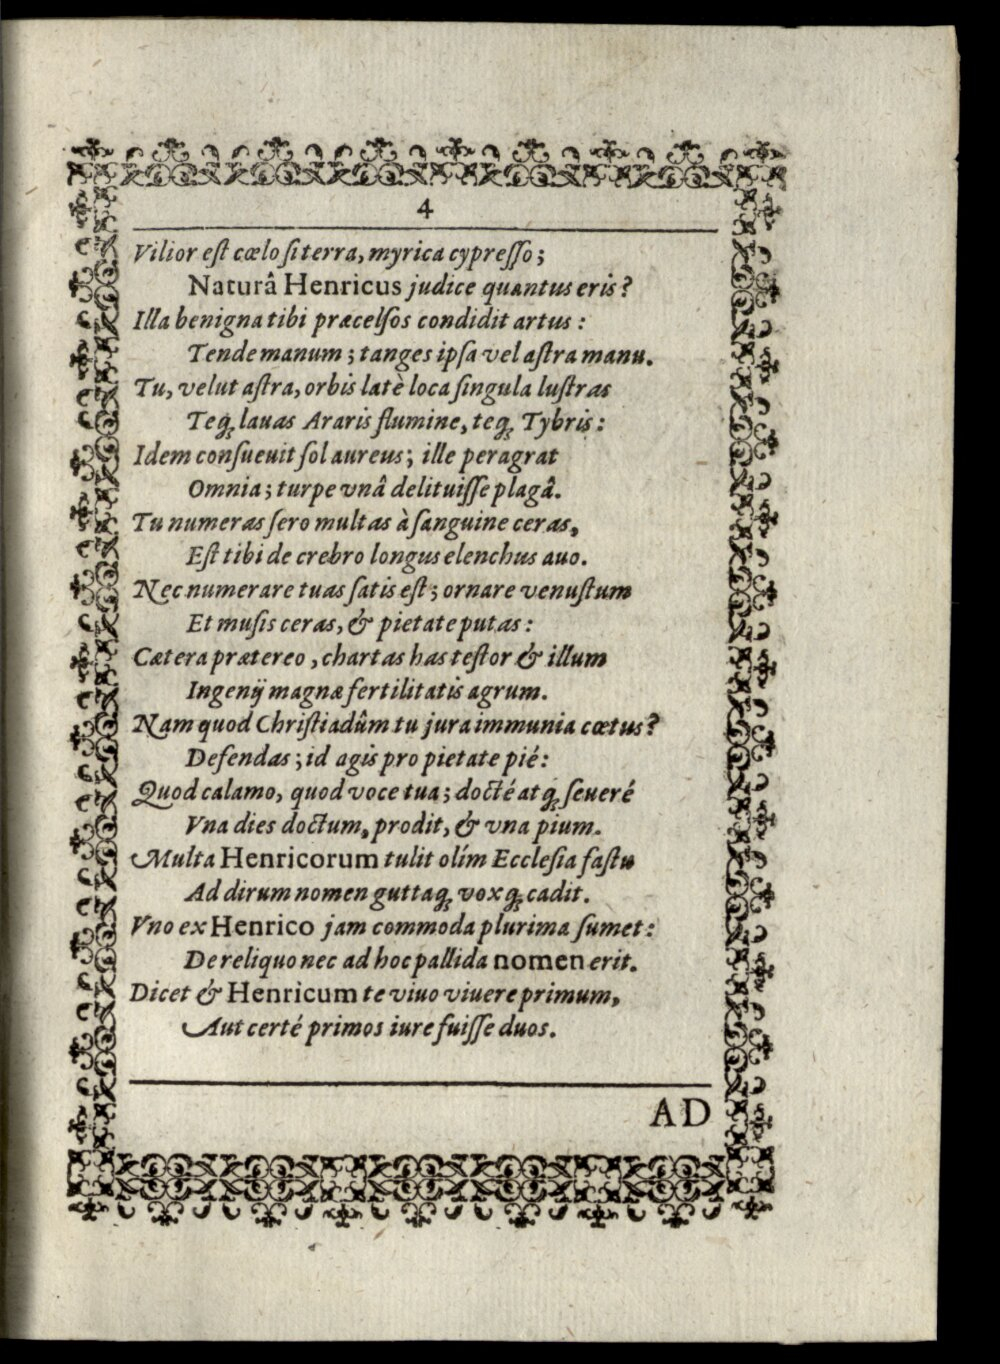 4
Vilior est cœlo si terra, myrica cypresso;
Naturâ Henricus judice quantus eris?
Illa benigna tibi præcelsos condidit artus:
Tende manum; tanges ipsa vel astra manu.
Tu, velut astra, orbis latè loca singula lustras
Teq́; lauas Araris flumine, teq́; Tybris:
Idem consueuit sol aureus; ille peragrat
Omnia; turpe vnâ delituisse plagâ.
Tu numeras sero multas à sanguine ceras,
Est tibi de crebro longus elenchus avo.
Nec numerare tuas satis est; ornare venustum
Et musis ceras, & pietate putas:
Cætera prætereo, chartas has testor & illum
Ingenij magnæ fertilitatis agrum.
Nam quod Christiadûm tu jura immunia cœtus?
Defendas; id agis pro pietate pié:
Quod calamo, quod voce tua; docté atq́; seueré
Vna dies doctum, prodit, & vna pium.
Multa Henricorum tulit olím Ecclesia fastu
Ad dirum nomen guttaq́; voxq́; cadit.
Vno ex Henrico jam commoda plurima sumet:
De reliquo nec ad hoc pallida nomen erit.
Dicet & Henricum te viuo viuere primum,
Aut certé primos iure fuisse duos.
AD